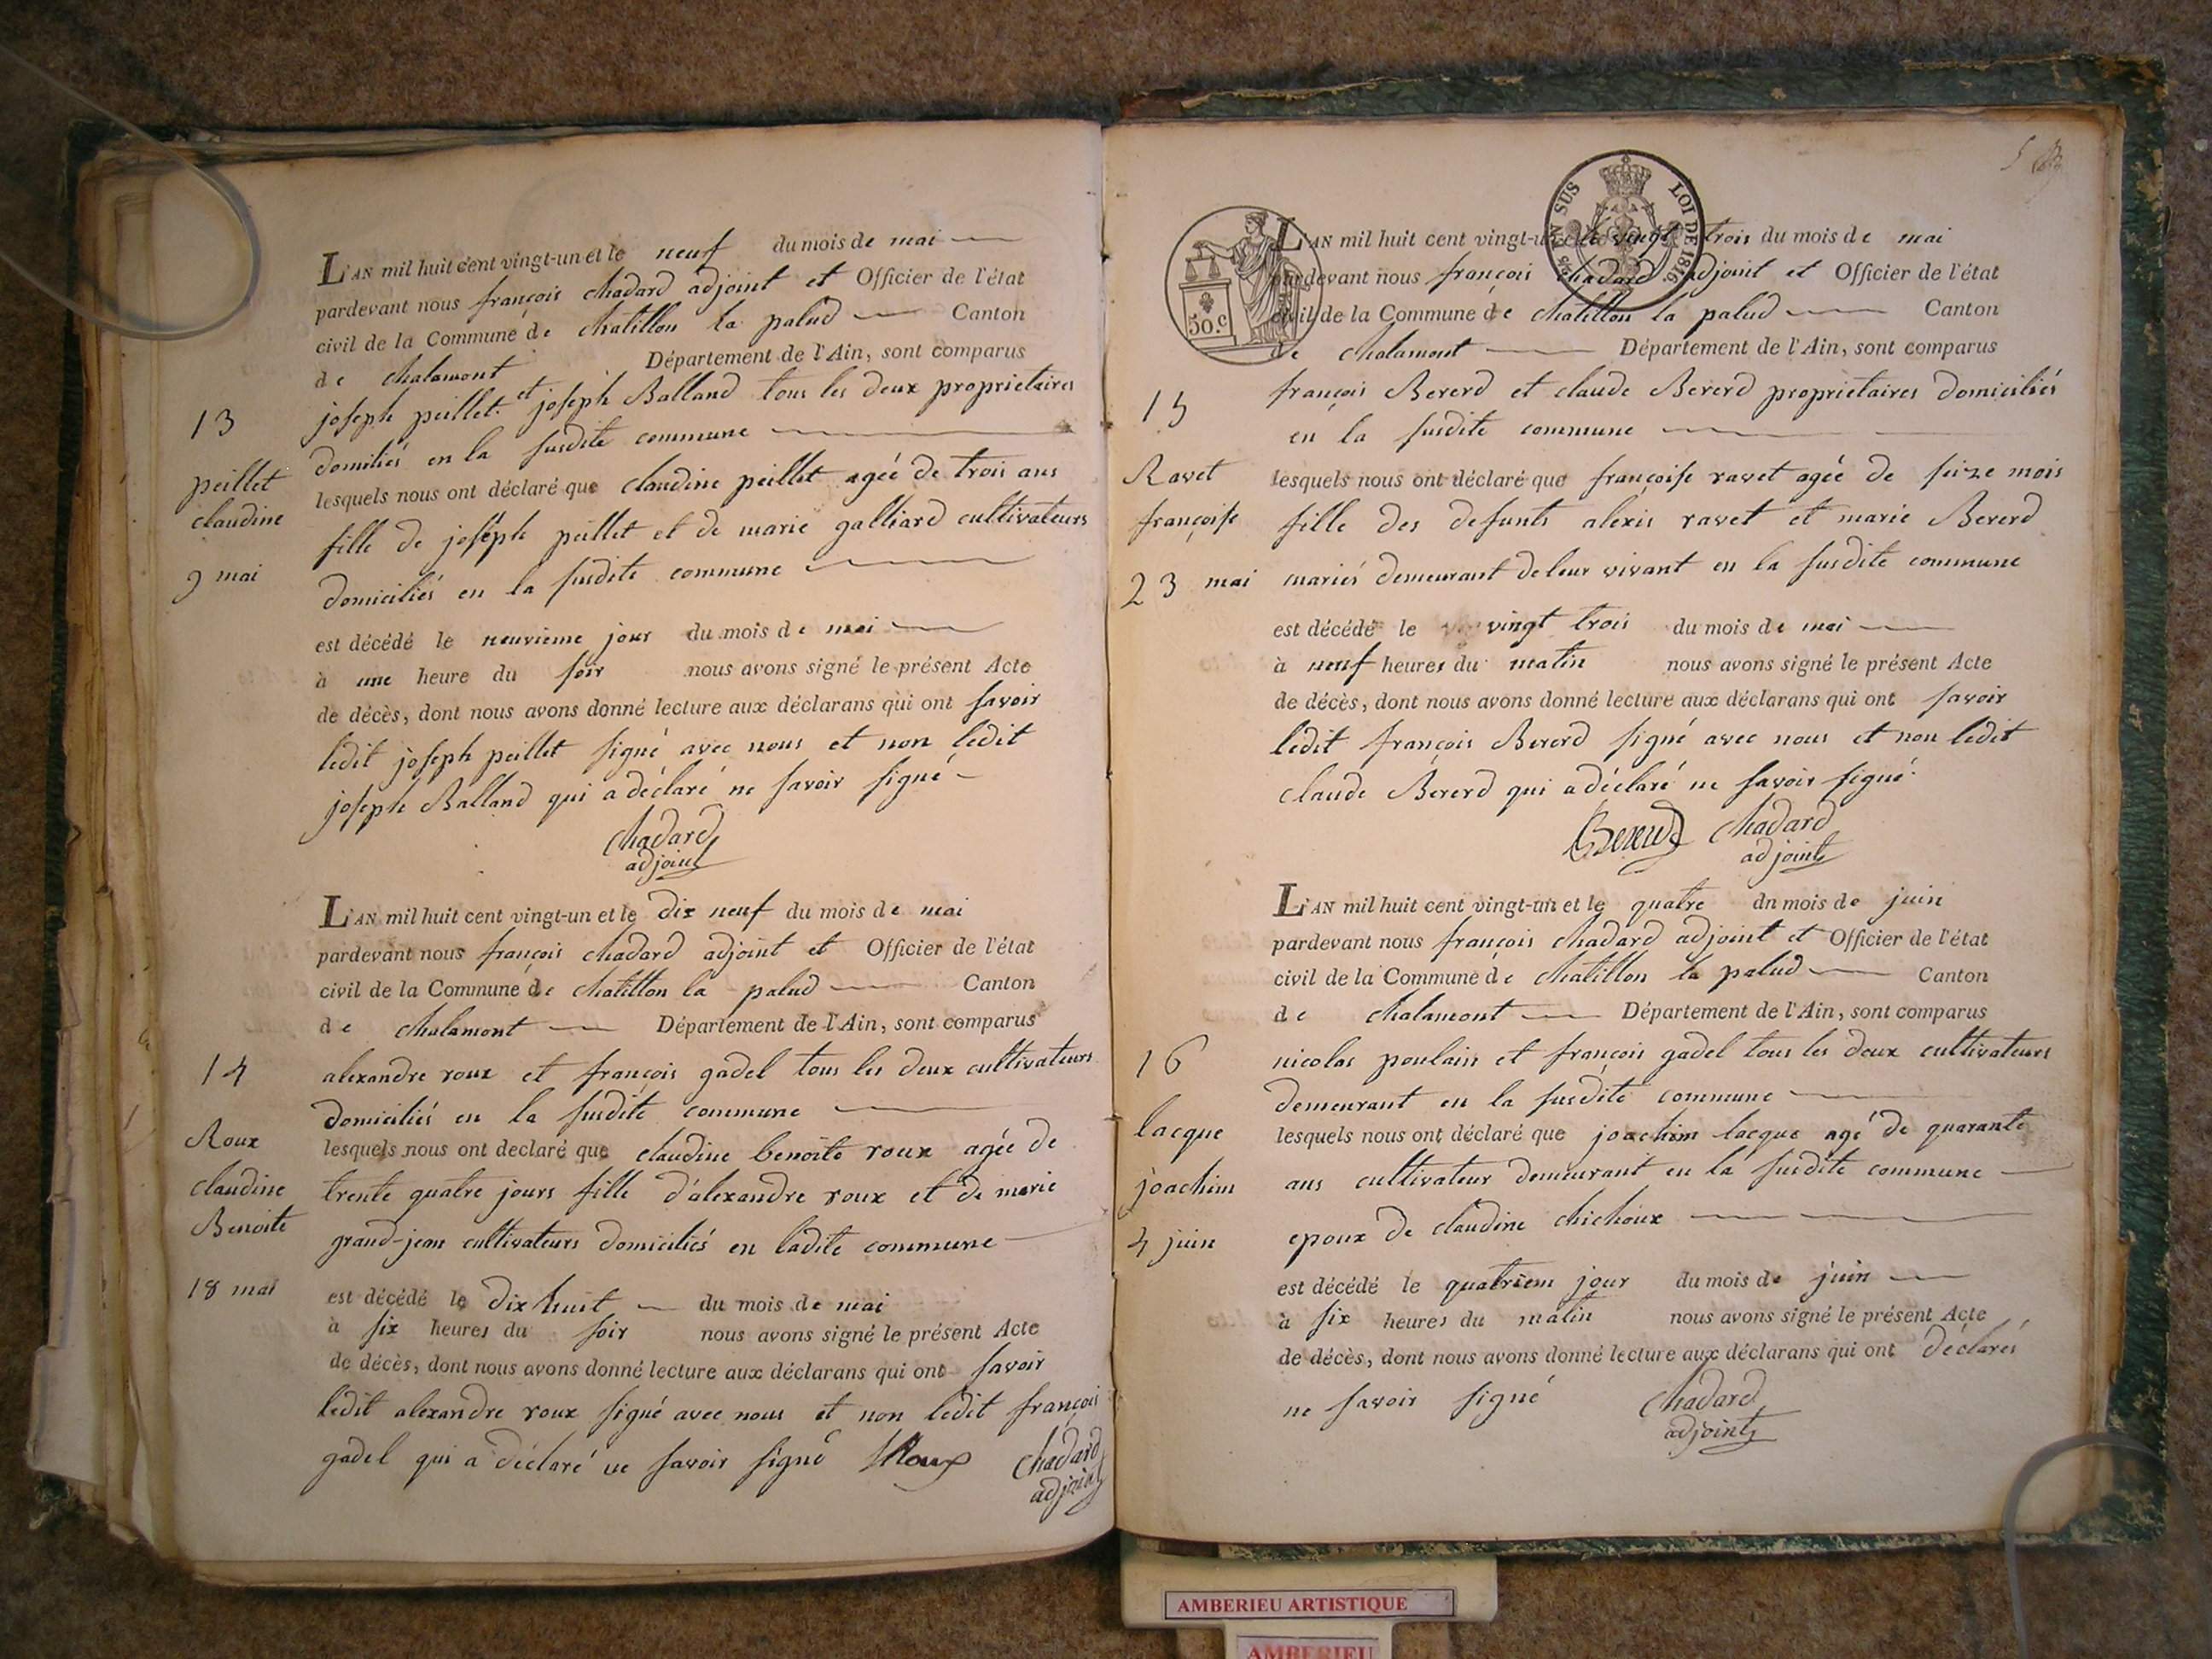 L'AN mil huit cent vingt-un et le neuf du mois de mai
pardevant nous françois chadard adjoint et Officier de l'état
civil de la Commune de chatillon la palud Canton
de chalamont Département de l'Ain, sont comparus
joseph peillet et joseph Balland tous les deux proprietaires
13
domiliés en la susdite commune
peillet
claudine
lesquels nous ont déclaré que claudine peillet agée de trois ans
fille de joseph peillet et de marie galliard cultivateurs
9 mai
domiciliés en la susdite commune
est décédé le neuvieme jour du mois de mai
à une heure du soir nous avons signé le présent Acte
de décès, dont nous avons donné lecture aux déclarans qui ont savoir
ledit joseph peillet signé avec nous et non ledit
joseph Balland qui a déclaré ne savoir signé
chadard
adjoint
L'AN mil huit cent vingt-un et le dix neuf du mois de mai
pardevant nous françois chadard adjoint et Officier de l'état
civil de la Commune de chatillon la palud Canton
de chalamont Département de l'Ain, sont comparus
14
alexandre roux et françois gadel tous les deux cultivateurs
domiciliés en la susdite commune
Roux
claudine
Benoite
lesquels nous ont declaré que claudine benoite roux agée de
trente quatre jours fille d'alexandre roux et de marie
grand-jean cultivateurs domiciliés en ladite commune
18 mai
est décédé le dix huit du mois de mai
à six heures du soir nous avons signé le présent Acte
de décès, dont nous avons donné lecture aux déclarans qui ont savoir
ledit alexandre roux signé avec nous et non ledit françois
gadel qui a déclaré ne savoir signé Roux chadard
adjoint
SUS
LOI DE 1816
50.c
L'AN mil huit cent vingt-un et le vingt trois du mois de mai
pardevant nous françois chadard adjoint et Officier de l'état
civil de la Commune de chatillon la palud Canton
de chalamont Département de l'Ain, sont comparus
15
françois Bererd et claude Bererd proprietaires domiciliés
en la susdite commune
Ravet
françoise
lesquels nous ont déclaré que françoise ravet agée de seize mois
fille des defunts alexis ravet et marie Bererd
23 mai
mariés demeurant de leur vivant en la susdite commune
est décédé le vingt trois du mois de mai
à neuf heures du matin nous avons signé le présent Acte
de décès, dont nous avons donné lecture aux déclarans qui ont savoir
ledit françois Bererd signé avec nous et non ledit
claude Bererd qui a déclaré ne savoir signé
Bererd chadard
adjoint
L'AN mil huit cent vingt-un et le quatre dn mois de juin
pardevant nous françois chadard adjoint et Officier de l'état
civil de la Commune de chatillon la palud Canton
de chalamont Département de l'Ain, sont comparus
16
nicolas poulain et françois gadel tous les deux cultivateurs
demeurant en la susdite commune
lacque
joachim
lesquels nous ont déclaré que joachim lacque agé de quarante
ans cultivateur demeurant en la susdite commune
4 juin
epoux de claudine chichoux
est décédé le quatriem jour du mois de juin
à six heures du matin nous avons signé le présent Acte
de décès, dont nous avons donné lecture aux déclarans qui ont déclarés
ne savoir signé chadard
adjoint
AMBERIEU ARTISTIQUE
AMBERIEU